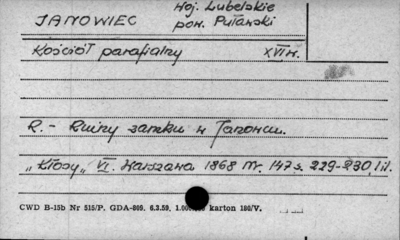 Woj. Lubelskie
JANOWIEC pow. Puławski
Kościół parafialny XVI w.
R. - Ruiny zamku w Janowcu.
"Kłosy" VI. Warszawa 1868 Nr. 147 s. 229-230, il.
CWD B-15b Nr 515/P. GDA-809. 6.3.59. karton 180/V.